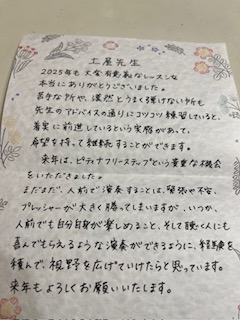 土屋先生
2025年も大変有意義なレッスンを
本当にありがとうございました。
苦手な所や、漠然とうまく弾けない所も
先生のアドバイスの通りにコツコツ練習していると、
着実に前進しているという実感があって、
希望を持って継続することができます。
来年は、ピティナフリーステップという貴重な機会
をいただきました。
まだまだ、人前で演奏することは、緊張や不安、
プレッシャーが大きく勝ってしまいますが、いつか、
人前でも自分自身が楽しめること、そして聴く人にも
喜んでもらえるような演奏ができるように、経験を
積んで、視野を広げていけたらと思っています。
来年もよろしくお願いいたします。